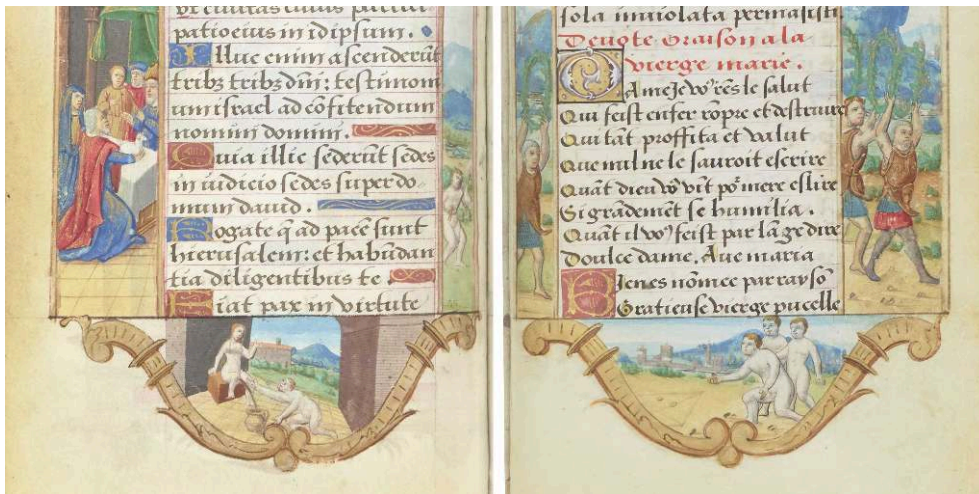 ut civitas cuius partici
patio eius in idipsum.
Illuc enim ascenderūt
tribꝫ tribꝫ dm̄: testimoni
um israel ad cōfitendum
nomini domini.
Quia illic sederūt sedes
in iudicio sedes super do
mum dauid.
Rogate q̄ ad pacē sunt
hierusalem: et habundan
tia diligentibus te
Fiat pax in virtute
sola inuiolata permāsisti
Deuote oraison a la
vierge marie.
Dame je voꝰ rēs le salut
Qui feist enfer rōpre et destruire
Qui tāt proffita et valut
Que nul ne le sauroit escrire
Quāt dieu voꝰ vit poꝰ mere eslire
Si grādemēt se humilia.
Quāt il voꝰ feist par lāge dire
Doulce dame. Aue maria
Biē nes nōmee par raysō
Gratieuse vierge pucelle